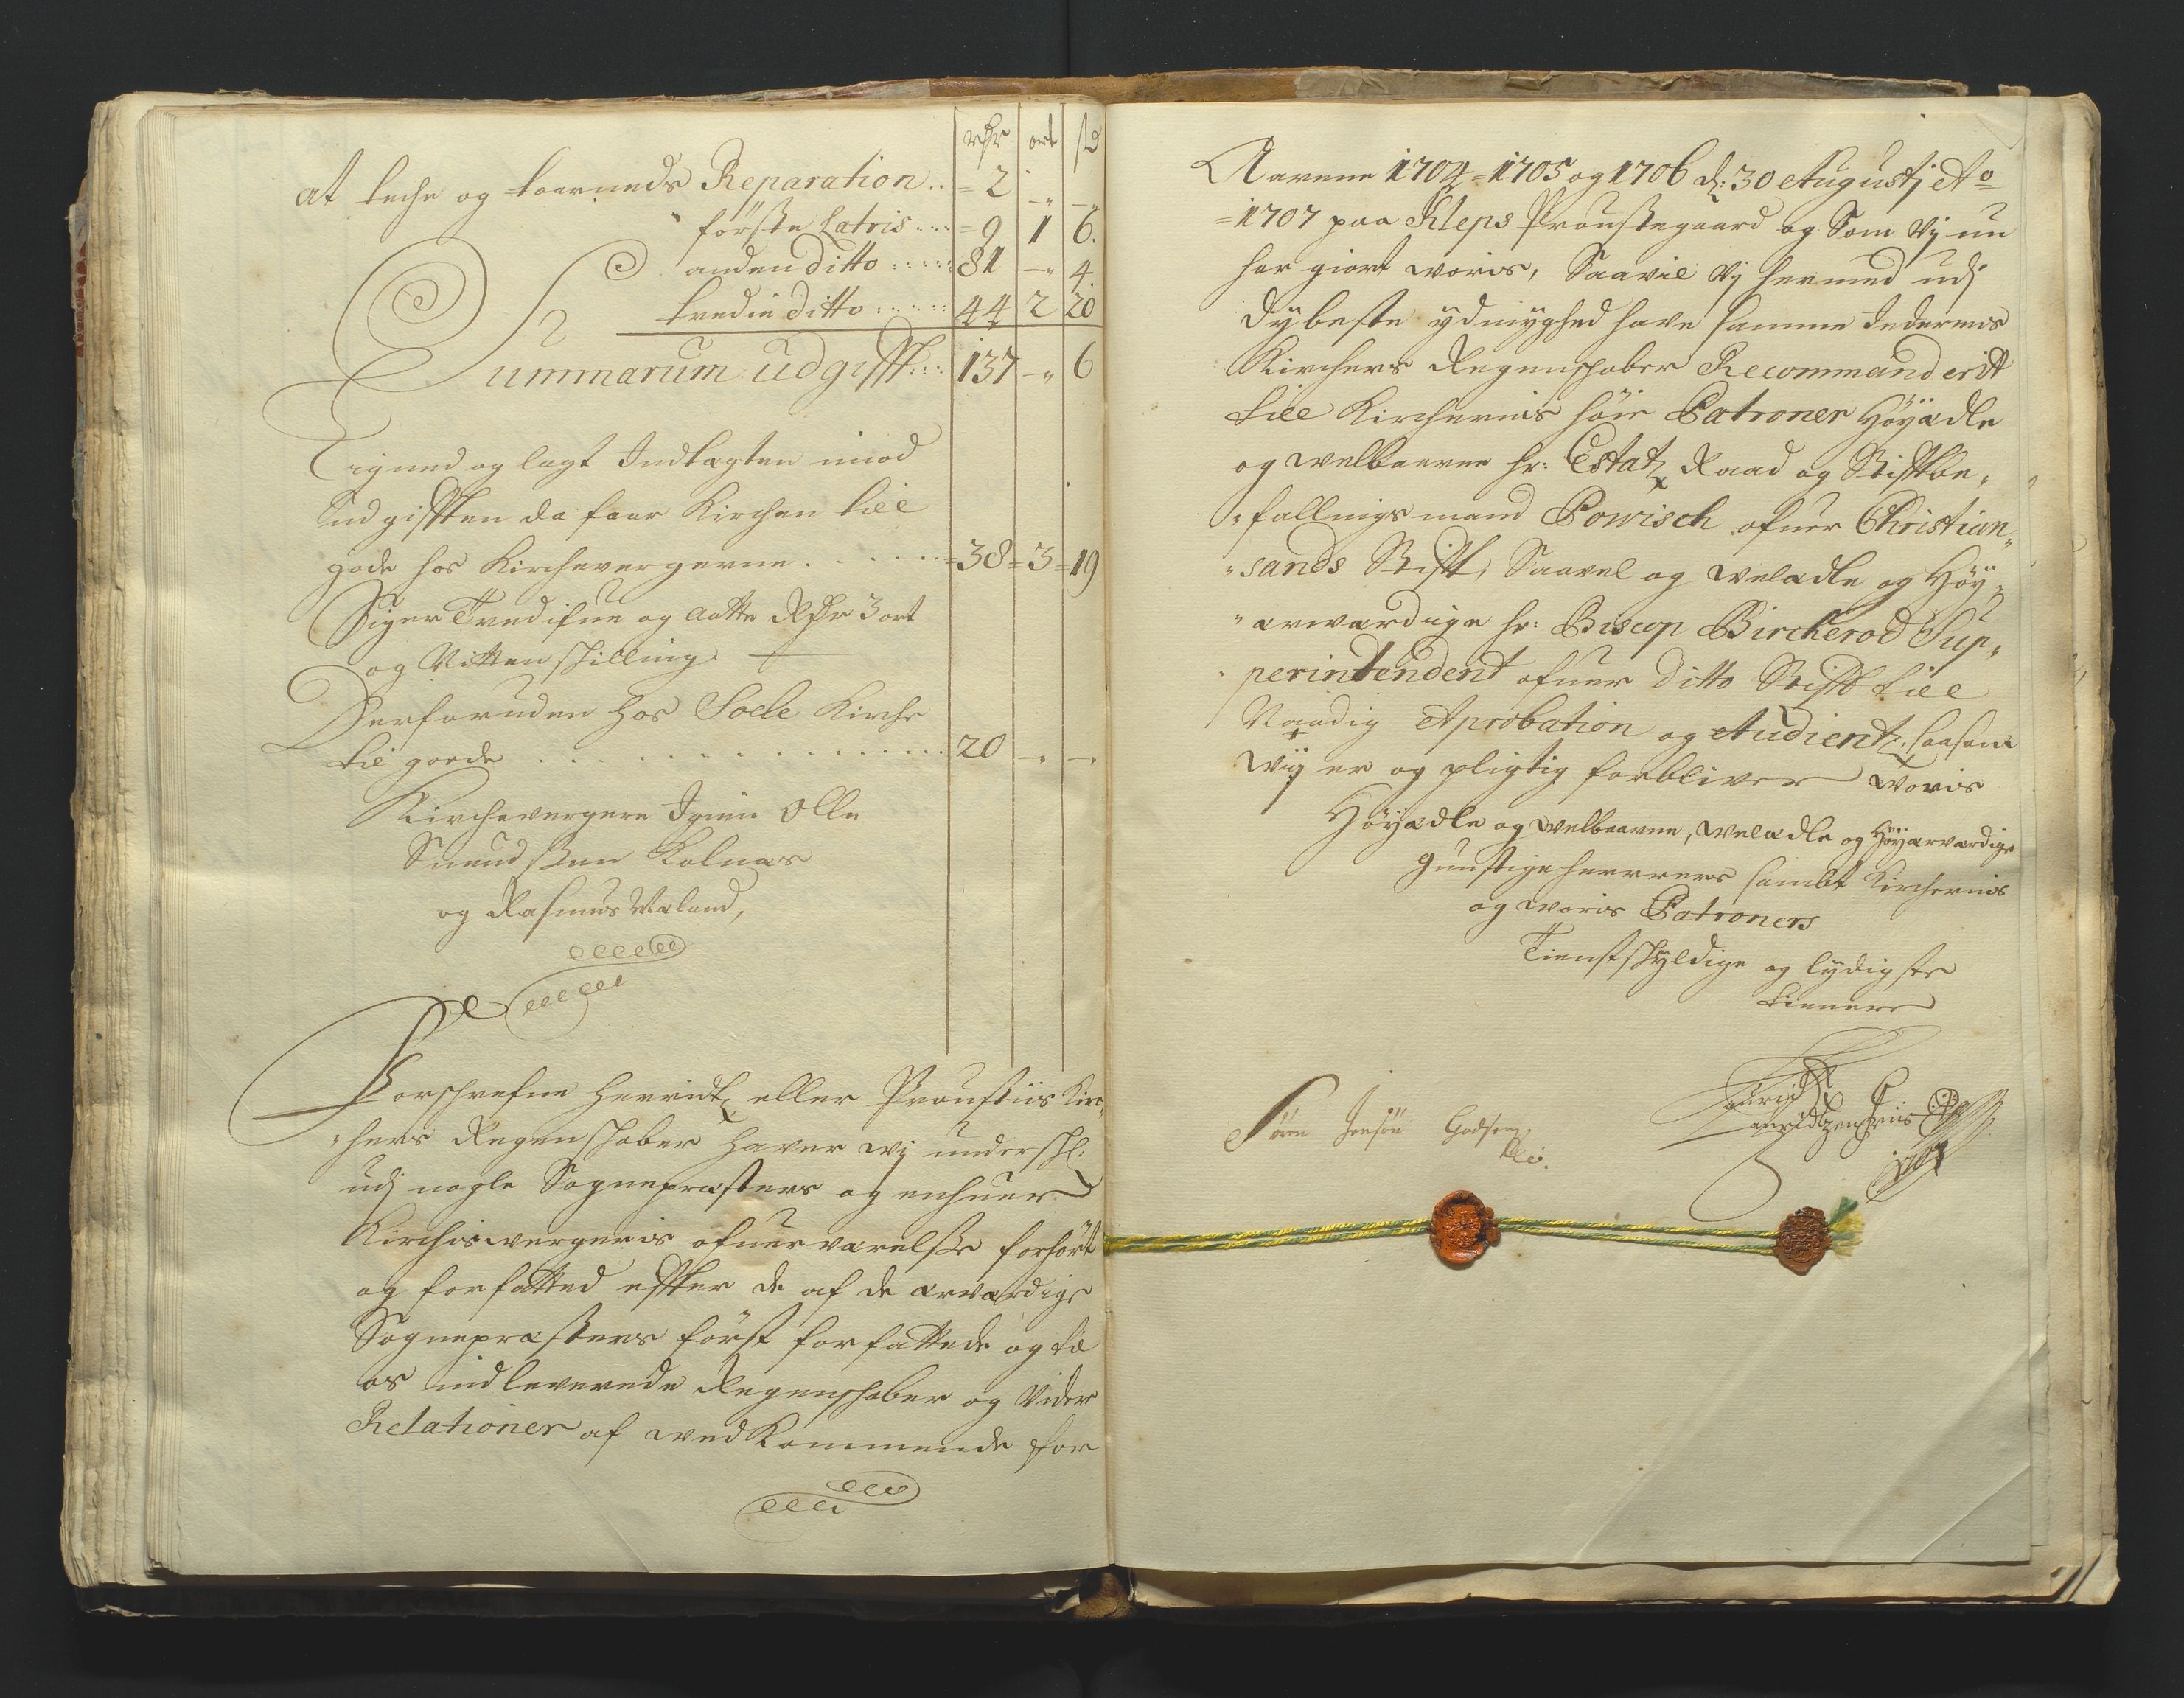 rdr ort sd
at teche og taarneds Reparation .. = 2 - -
förste Latris .... = 9 1 6.
anden ditto ...... 81 - 4
tredie ditto ...... 44 2 20
Summarum udgifft ... 137 - 6
Eigned og lagt Indtagten imod
Udgifften da faar Kirchen till
gode hos Kirchevergerne ..... = 38 = 3 = 19
Siger Tredifue og aatte Rdr 3 ort
og Nitten schilling
Derforuden hos Soele Kirche
til gode .............. 20 - -
Kirchevergere Igien Olle
Suendsen Kolnes
og Rasmus Meland,
Forschrefne Herridtz eller Proustiis Kirc„
„hers Regenschaber haver wij undersch:
udj nogle Sognepræsters og enhuer
Kirchis vergeris ofuerværelsse forhört
og forfatted effter de af de ærværdige
Sognepræsters först forfattede og til
os indleverede Regenschaber og Vider
Relationer af wedkommende for
Aarene 1704 = 1705 og 1706 d: 30 Augustj Ao
= 1707 paa Kleps Proustegaard og Som vj nu
har giort voris, Saavil vj hermed udj
dybeste ydmyghed have samme
Kirchers Regenschaber Recommanderit
till Kirchernis höie Patroner Höyædle
og welbaarne hr: Estatz Raad og Stifftbe„
„fallings mand Powisch ofuer Christian„
„sands Stifft, Saavel og welædle og Höy„
„ærværdige hr: Biscop Bircherod Sup„
„perintendent ofuer ditto Stifft till
Naadig Aprobation og Audientz, saasom
Wij er og pligtig forbliver Woris
Höyædle og welbaarne, welædle og Höyærværdige
gunstige herrers sambt Kirchernis
og woris Patroners
Tienstschyldige og lydigste
tienere
Sören Jensön Godtzen
Lauridtz
Lauridtzen Friis
1707